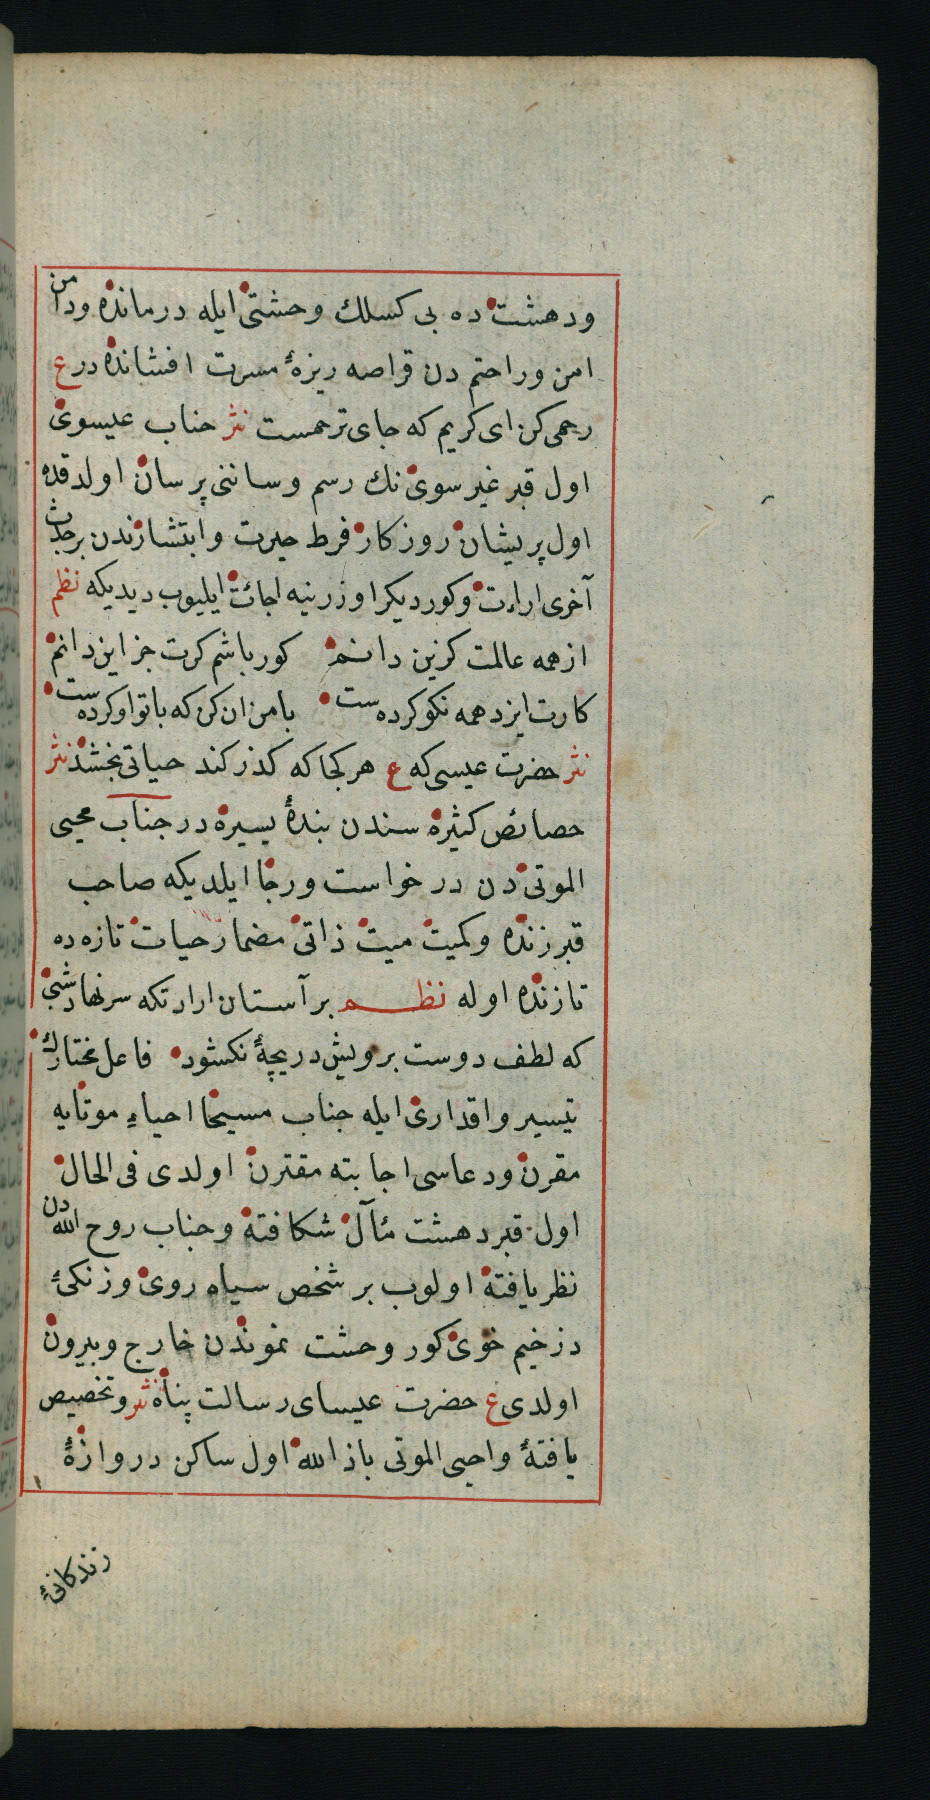 ودهشت ده بی كسلك وحشتی ایله درمانده ودامن
امن وراحتم دن قراصه ریزۀ مسرت افشانده در ع
رحمی كن ای كریم كه جای ترحمست نثر جناب عیسوی
اول قبر غیر سوی نك رسم وساننی پرسان اولدقده
اول پریشان روزكار فرط حیرت وابتشارندن برجدث
آخری اراءت وكوردیكر اوزرینه اجائت ایلیوب دیدیكه نظم
از همه عالمت كزین دانم كور باشم كرت جز این دانم
كارت ایزد همه نكو كرده ست با من ان كن كه با تو او كرده ست
نثر حضرت عیسی كه ع هر كجا كه كذر كند حیاتی بخشد نثر
حصائص كثیره سندن بندۀ یسیره در جناب محیی
الموتی دن درخواست ورجا ایلدیكه صاحب
قبر زنده وكمیت میت ذاتی مضمار حیات تازه ده
تازنده اوله نظم بر آستان ارادتكه سر نهاد شبی
كه لطف دوست برویش دریچۀ نكشود فاعل مختارك
تیسیر واقداری ایله جناب مسیحا احیاء موتایه
مقرن ودعاسی اجابته مقترن اولدی فی الحال
اول قبر دهشت مئآل شكافته وجناب روح الله دن
نظر یافته اولوب بر شخص سیاه روی وزنكئ
دزخیم خوی كور وحشت نموندن خارج وبیرون
اولدی ع حضرت عیسای رسالت پناه نثر وتخصیص
یافتۀ واحیی الموتی باذ الله اول ساكن دروازۀ
زندكانئ